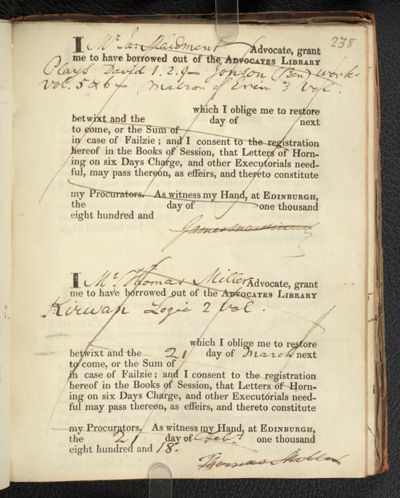 238
I Mr. Ja. Maidment Advocate, grant
me to have borrowed out of the ADVOCATES LIBRARY
Plays David 1. 2. 9 – Jonson (Ben) works
vol. 5 & 6 – 3 Vol.
which I oblige me to restore
betwixt and the day of next
to come, or the Sum of
in case of Failzie; and I consent to the registration
hereof in the Books of Session, that Letters of Horn-
ing on six Days Charge, and other Executorials need-
ful, may pass thereon, as effeirs, and thereto constitute
my Procurators. As witness my Hand, at EDINBURGH,
the day of one thousand
eight hundred and
James Maidment
I Mr. Thomas Miller Advocate, grant
me to have borrowed out of the ADVOCATES LIBRARY
Kirwan Logic 2 Vol.
which I oblige me to restore
betwixt and the 21 day of March next
to come, or the Sum of
in case of Failzie; and I consent to the registration
hereof in the Books of Session, that Letters of Horn-
ing on six Days Charge, and other Executorials need-
ful may pass thereon, as effeirs, and thereto constitute
my Procurators. As witness my Hand, at EDINBURGH,
the 21 day of Feby. one thousand
eight hundred and 18.
Thomas Miller